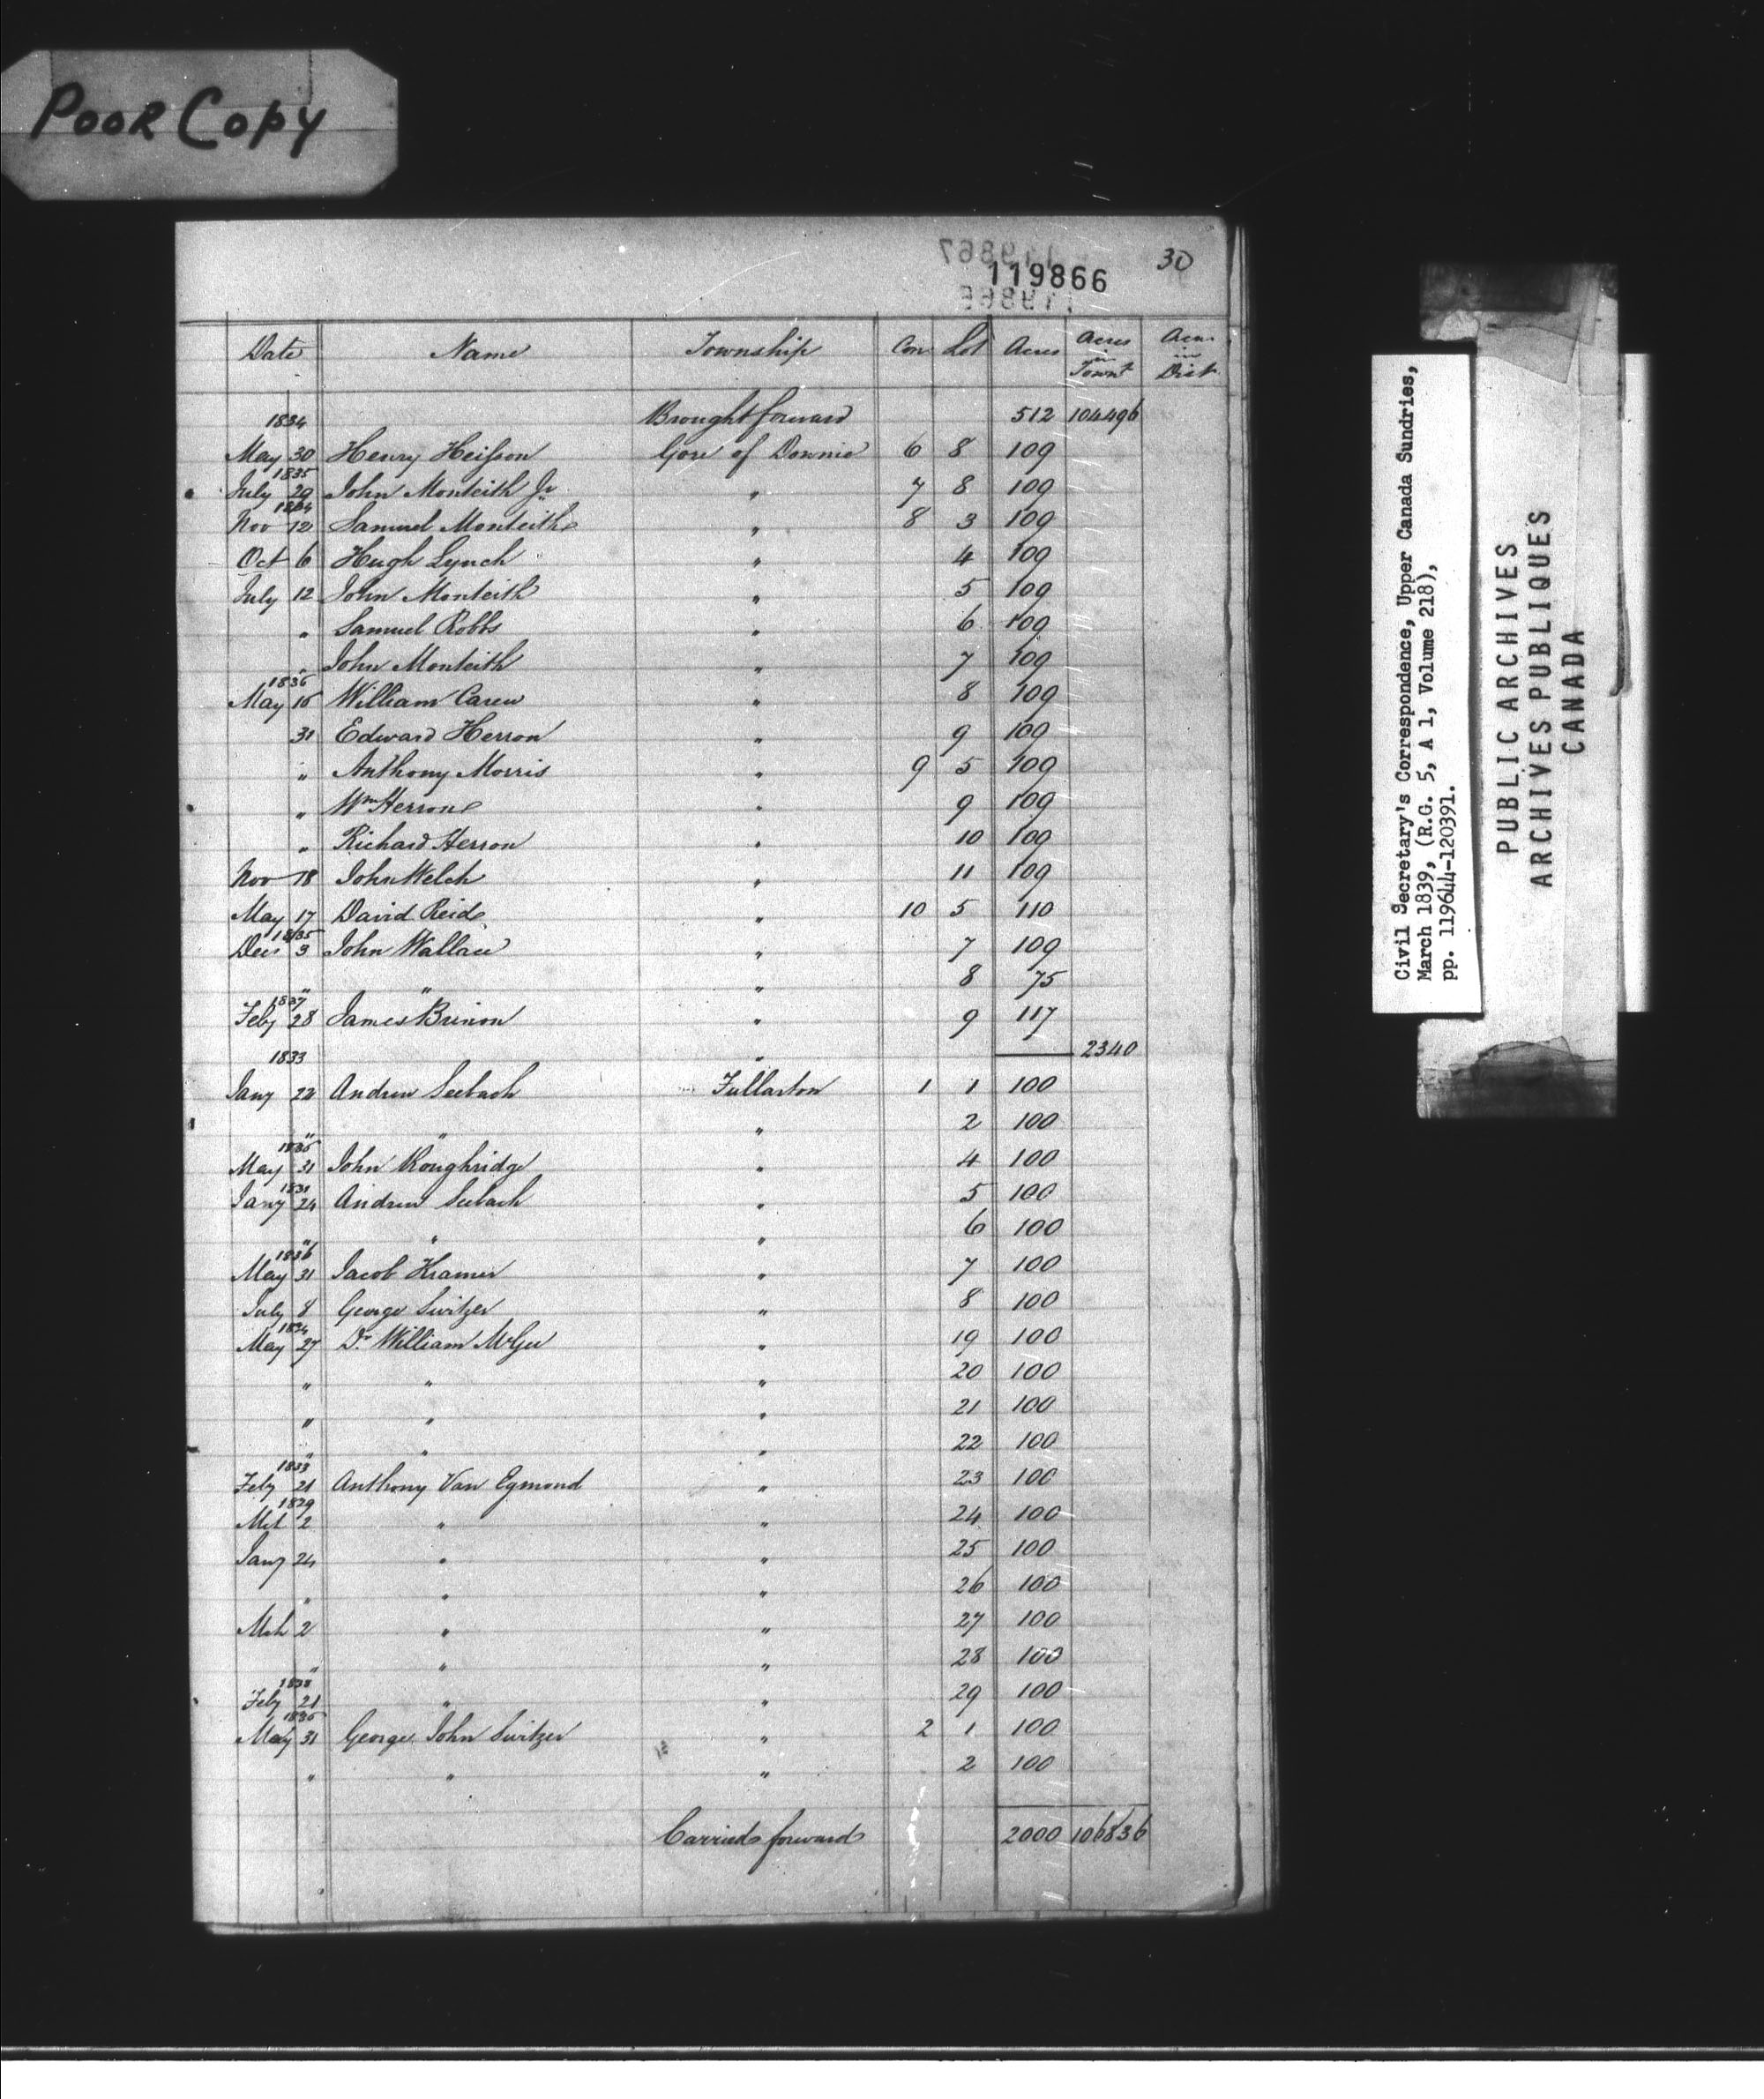 Poor Copy
30
119867
119866
Date Name Township Con Lot Acres Acres in Townp Acres in Dist
1834 Brought forward 512 104496
May 30 Henry Heifson Gore of Downie 6 8 109
1835
July 29 John Monteith Jr " 7 8 109
1834
Nov 12 Samuel Monteith " 8 3 109
Oct 6 Hugh Lynch " 4 109
July 12 John Monteith " 5 109
" Samuel Robbs " 6 109
" John Monteith " 7 109
1836
May 16 William Carew " 8 109
31 Edward Herron " 9 109
" Anthony Morris " 9 5 109
" Wm Herron " 9 109
" Richard Herron " 10 109
Nov 18 John Welch " 11 109
May 17 David Reid " 10 5 110
1835
Dec 3 John Wallace " 7 109
" " " 8 75
1837
Feby 28 James Brinon " 9 117
1833 " 2340
Jany 22 Andrew Seebach Fullarton 1 1 100
" " " 2 100
1836
May 31 John Roughridge " 4 100
1831
Jany 24 Andrew Seebach " 5 100
" " " 6 100
1836
May 31 Jacob Kramer " 7 100
July 8 George Switzer " 8 100
1834
May 27 Dr William McGee " 19 100
" " " 20 100
" " " 21 100
" " " 22 100
1833
Feby 21 Anthony Van Egmond " 23 100
1829
Mch 2 " " 24 100
Jany 24 " " 25 100
" " " 26 100
Mch 2 " " 27 100
" " " 28 100
1833
Feby 21 " " 29 100
1836
May 31 George John Switzer " 2 1 100
" " " 2 100
Carried forward 2000 106836
Civil Secretary's Correspondence, Upper Canada Sundries,
March 1839, (R.G. 5, A 1, Volume 218),
pp. 119644-120391.
PUBLIC ARCHIVES
ARCHIVES PUBLIQUES
CANADA